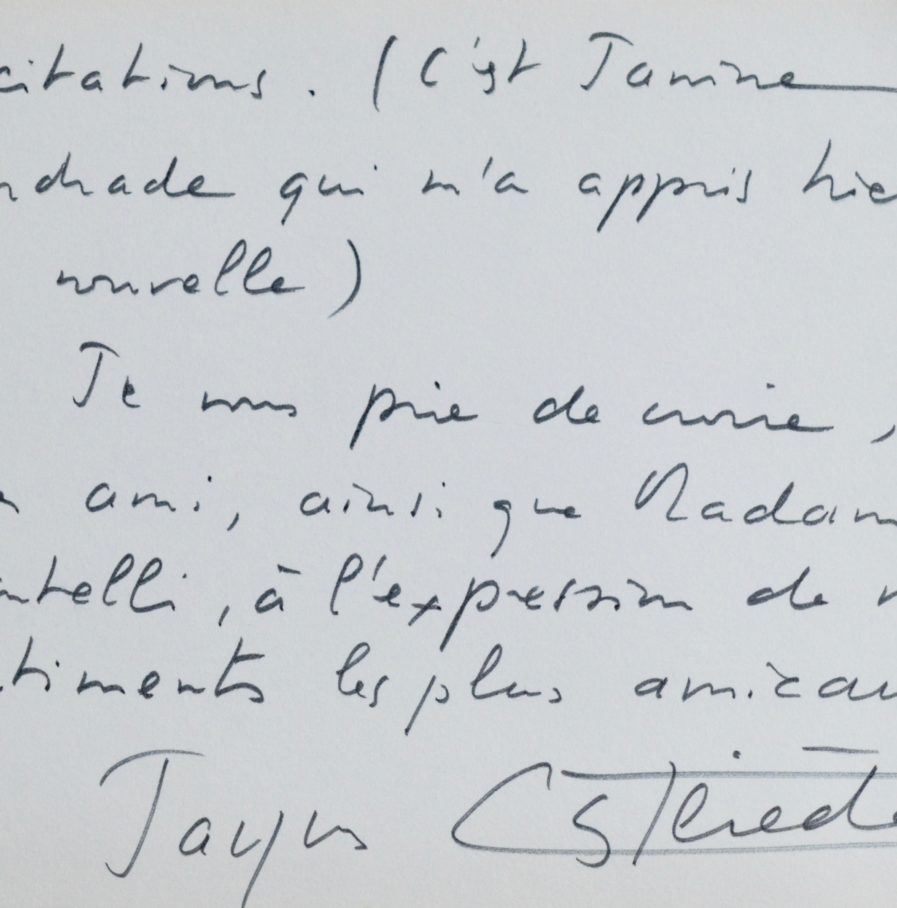 citations. (C'est Janine
ndrade qui m'a appris hie
nouvelle)
Je vous prie de croire,
ami, ainsi que Madam
ntelli, à l'expression de
timents les plus amicau
Jacques Castérède